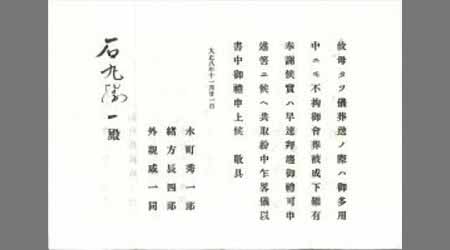 故母タツ儀葬送ノ際ハ御多用
中ニモ不拘御會葬被成下難有
奉謝候實ハ早速拜趨御禮可申
述筈ニ候ヘ共取紛中乍畧儀以
書中御禮申上候 敬具
大正八年十一月廿一日
町秀一郎
緒方長四郎
外親戚一同
石丸勝一殿